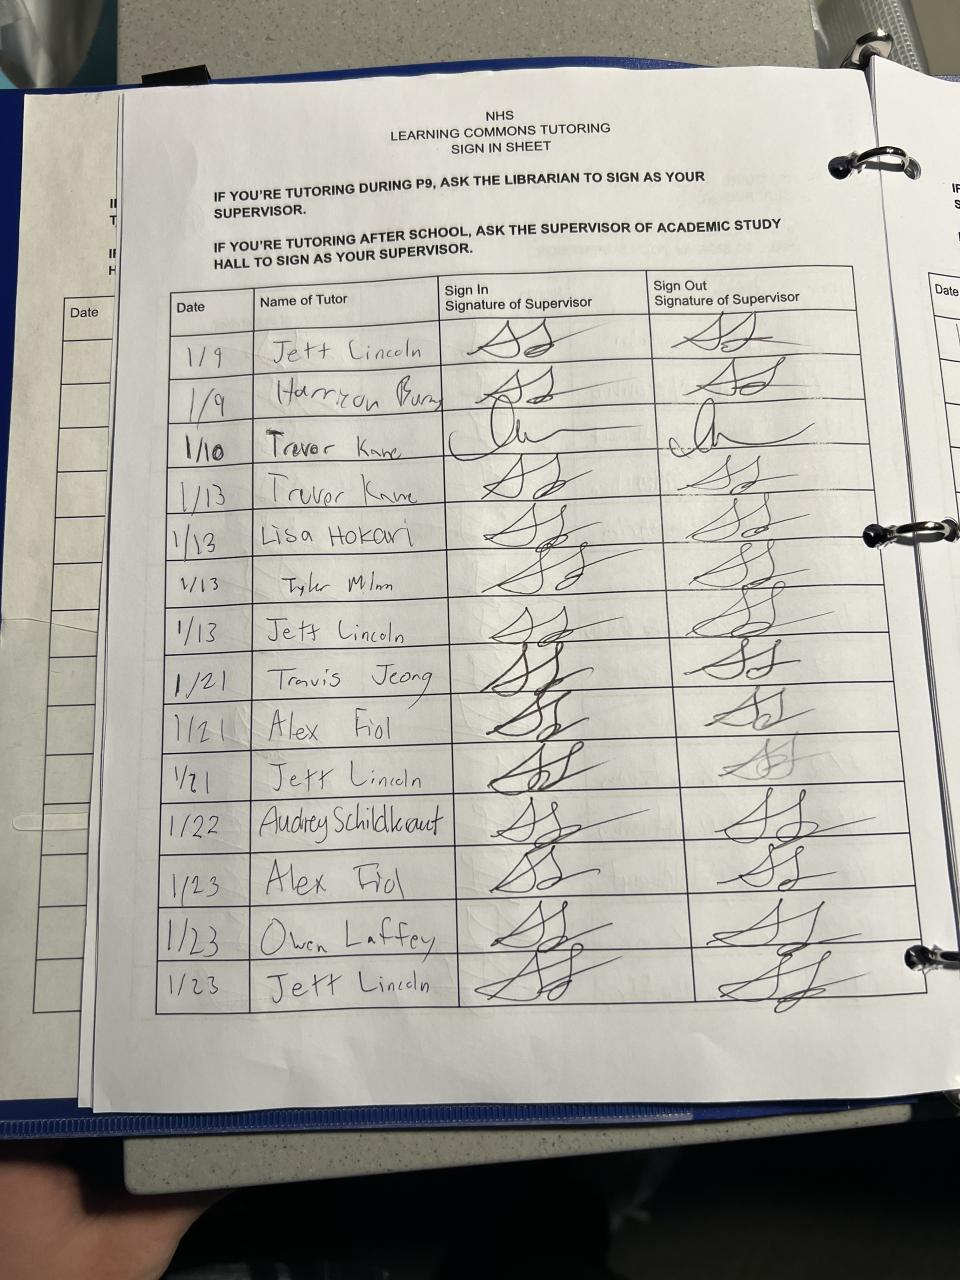 NHS
LEARNING COMMONS TUTORING
SIGN IN SHEET
IF YOU'RE TUTORING DURING P9, ASK THE LIBRARIAN TO SIGN AS YOUR
SUPERVISOR.
IF YOU'RE TUTORING AFTER SCHOOL, ASK THE SUPERVISOR OF ACADEMIC STUDY
HALL TO SIGN AS YOUR SUPERVISOR.
Date
Date Name of Tutor Sign In Signature of Supervisor Sign Out Signature of Supervisor
Date
1/9 Jett Lincoln
1/9 Harrison
1/10 Trevor Kane
1/13 Trevor Kane
1/13 Lisa Hokari
1/13 Tyler
1/13 Jett Lincoln
1/21 Travis Jeong
1/21 Alex Fiol
1/21 Jett Lincoln
1/22 Audrey Schildkraut
1/23 Alex Fiol
1/23 Owen Laffey
1/23 Jett Lincoln